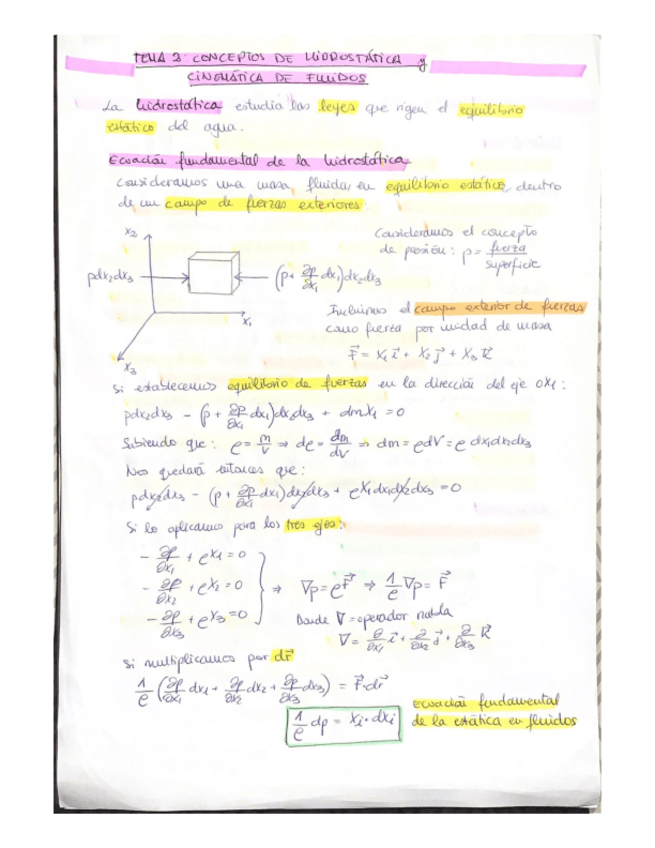 TEMA 3: CONCEPTOS DE HIDROSTÁTICA y
CINEMÁTICA DE FLUIDOS
La hidrostática estudia las leyes que rigen el equilibrio
estático del agua.
Ecuación fundamental de la hidrostática
Consideramos una masa fluida, en equilibrio estático, dentro
de un campo de fuerzas exteriores.
x₂
pdx₂dx₃
(p + ∂p/∂x₁ dx₁)dx₂dx₃
x₁
x₃
Consideramos el concepto
de presión: p = fuerza/superficie
Incluimos el campo exterior de fuerzas
como fuerza por unidad de masa
F⃗ = X₁ i⃗ + X₂ j⃗ + X₃ k⃗
Si establecemos equilibrio de fuerzas en la dirección del eje OX₁:
pdx₂dx₃ - (p + ∂p/∂x₁ dx₁)dx₂dx₃ + dmX₁ = 0
Sabiendo que: ρ = m/V ⇒ dρ = dm/dV ⇒ dm = ρdV = ρ dx₁dx₂dx₃
Nos quedará entonces que:
pdx₂dx₃ - (p + ∂p/∂x₁ dx₁)dx₂dx₃ + ρX₁dx₁dx₂dx₃ = 0
Si lo aplicamos para los tres ejes:
- ∂p/∂x₁ + ρX₁ = 0
- ∂p/∂x₂ + ρX₂ = 0
- ∂p/∂x₃ + ρX₃ = 0
⇒ ∇p = ρF⃗ ⇒ 1/ρ ∇p = F⃗
Donde ∇ = operador nabla
∇ = ∂/∂x₁ i⃗ + ∂/∂x₂ j⃗ + ∂/∂x₃ k⃗
Si multiplicamos por dr⃗
1/ρ (∂p/∂x₁ dx₁ + ∂p/∂x₂ dx₂ + ∂p/∂x₃ dx₃) = F⃗·dr⃗
1/ρ dp = Xi · dxi
Ecuación fundamental
de la estática en fluidos